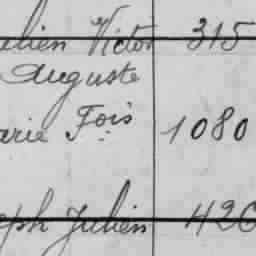 elien Victor 315
Auguste
arie Fois 1080
eph Julien 420